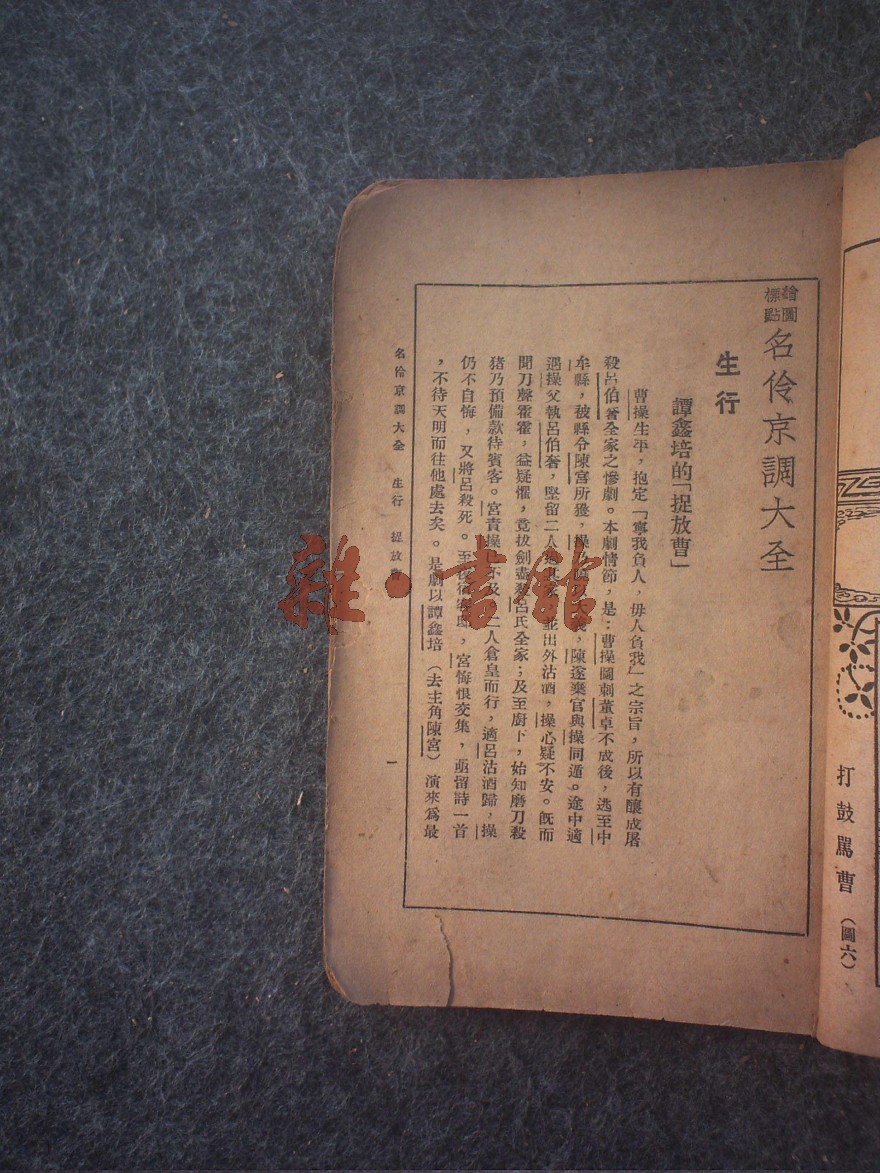 繪圖
標點
名伶京調大全
生行
譚鑫培的「捉放曹」
曹操生平，抱定「寧我負人，毋人負我」之宗旨，所以有釀成屠
殺呂伯奢全家之慘劇。本劇情節，是：曹操圖刺董卓不成後，逃至中
牟縣，被縣令陳宮所獲，操 以大義，陳遂棄官與操同遁。途中適
遇操父執呂伯奢，堅留二人 並出外沽酒，操心疑不安。旣而
聞刀聲霍霍，益疑懼，竟拔劍盡殺呂氏全家；及至廚下，始知磨刀殺
猪乃預備款待賓客。宮責操 不及，二人倉皇而行，適呂沽酒歸，操
仍不自悔，又將呂殺死。至夜宿 ，宮悔恨交集，亟留詩一首
，不待天明而往他處去矣。是劇以譚鑫培（去主角陳宮）演來爲最
名伶京調大全 生行 捉放曹
一
打鼓罵曹（圖六）
雜·書館